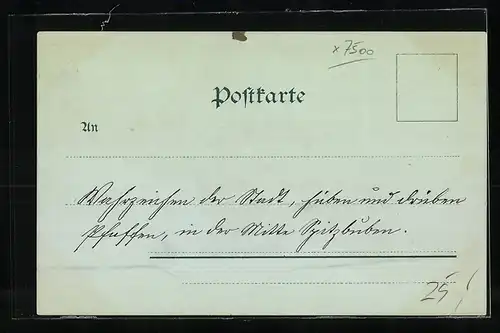 x 7500
Postkarte
An
Wahrzeichen der Stadt, hüben und drüben
Pfaffen, in der Mitte Spitzbuben.
25